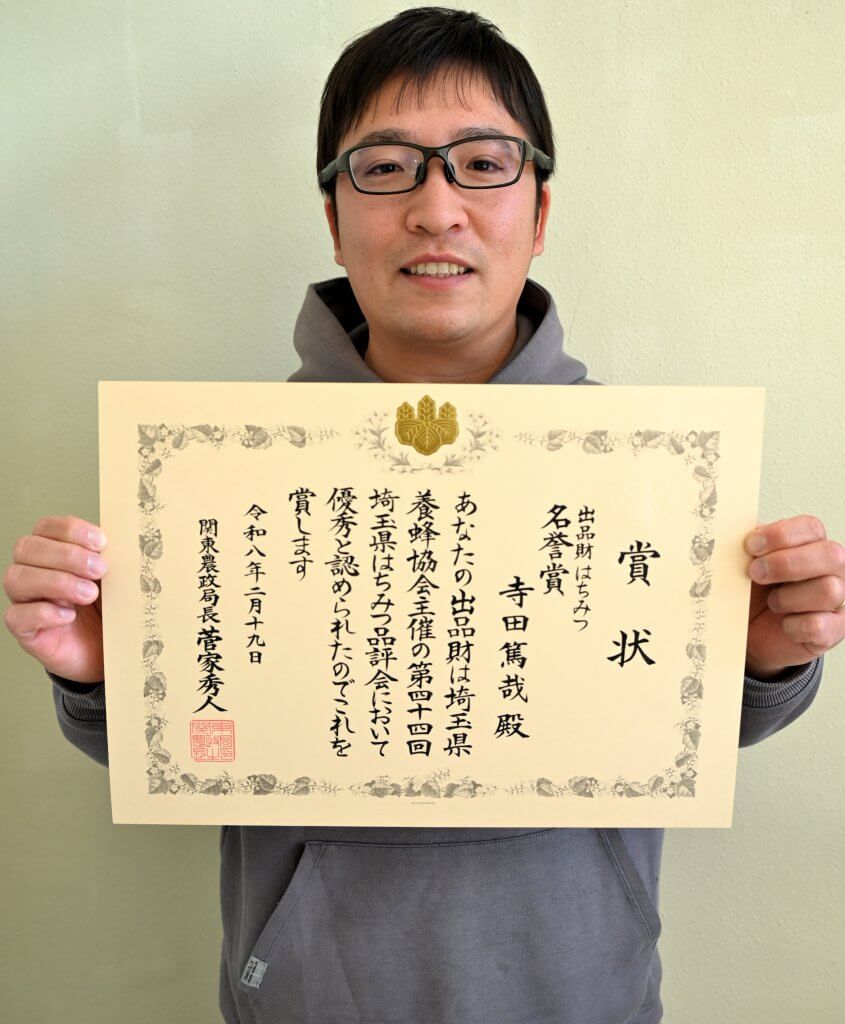 賞状
出品財 はちみつ
名誉賞
寺田篤哉殿
あなたの出品財は埼玉県
養蜂協会主催の第四十四回
埼玉県はちみつ品評会において
優秀と認められたのでこれを
賞します
令和八年二月十九日
関東農政局長 菅家秀人